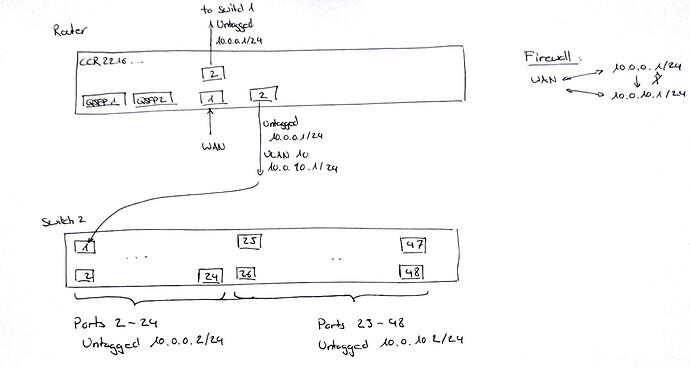 to switch 1
Untagged
10.0.0.1/24
Router
CCR2216...
2
QSFP1
QSFP2
1
2
WAN
Untagged
10.0.0.1/24
VLAN 10
10.0.10.1/24
Firewall:
WAN
10.0.0.1/24
10.0.10.1/24
Switch 2
1
25
47
...
...
2
24
26
48
Ports 2-24
Untagged 10.0.0.2/24
Ports 25-48
Untagged 10.0.10.2/24